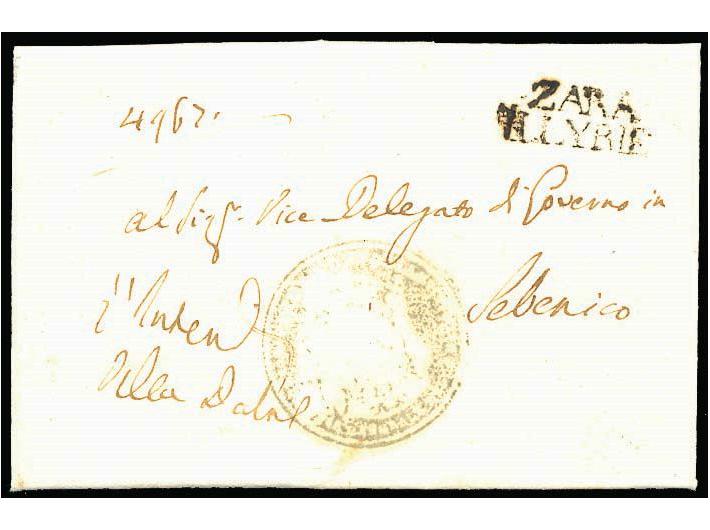 4967.
ZARA
ILLYRIE
al Sigr. Vice Delegato di Governo in
Sebenico
l'Intend
della Dalm